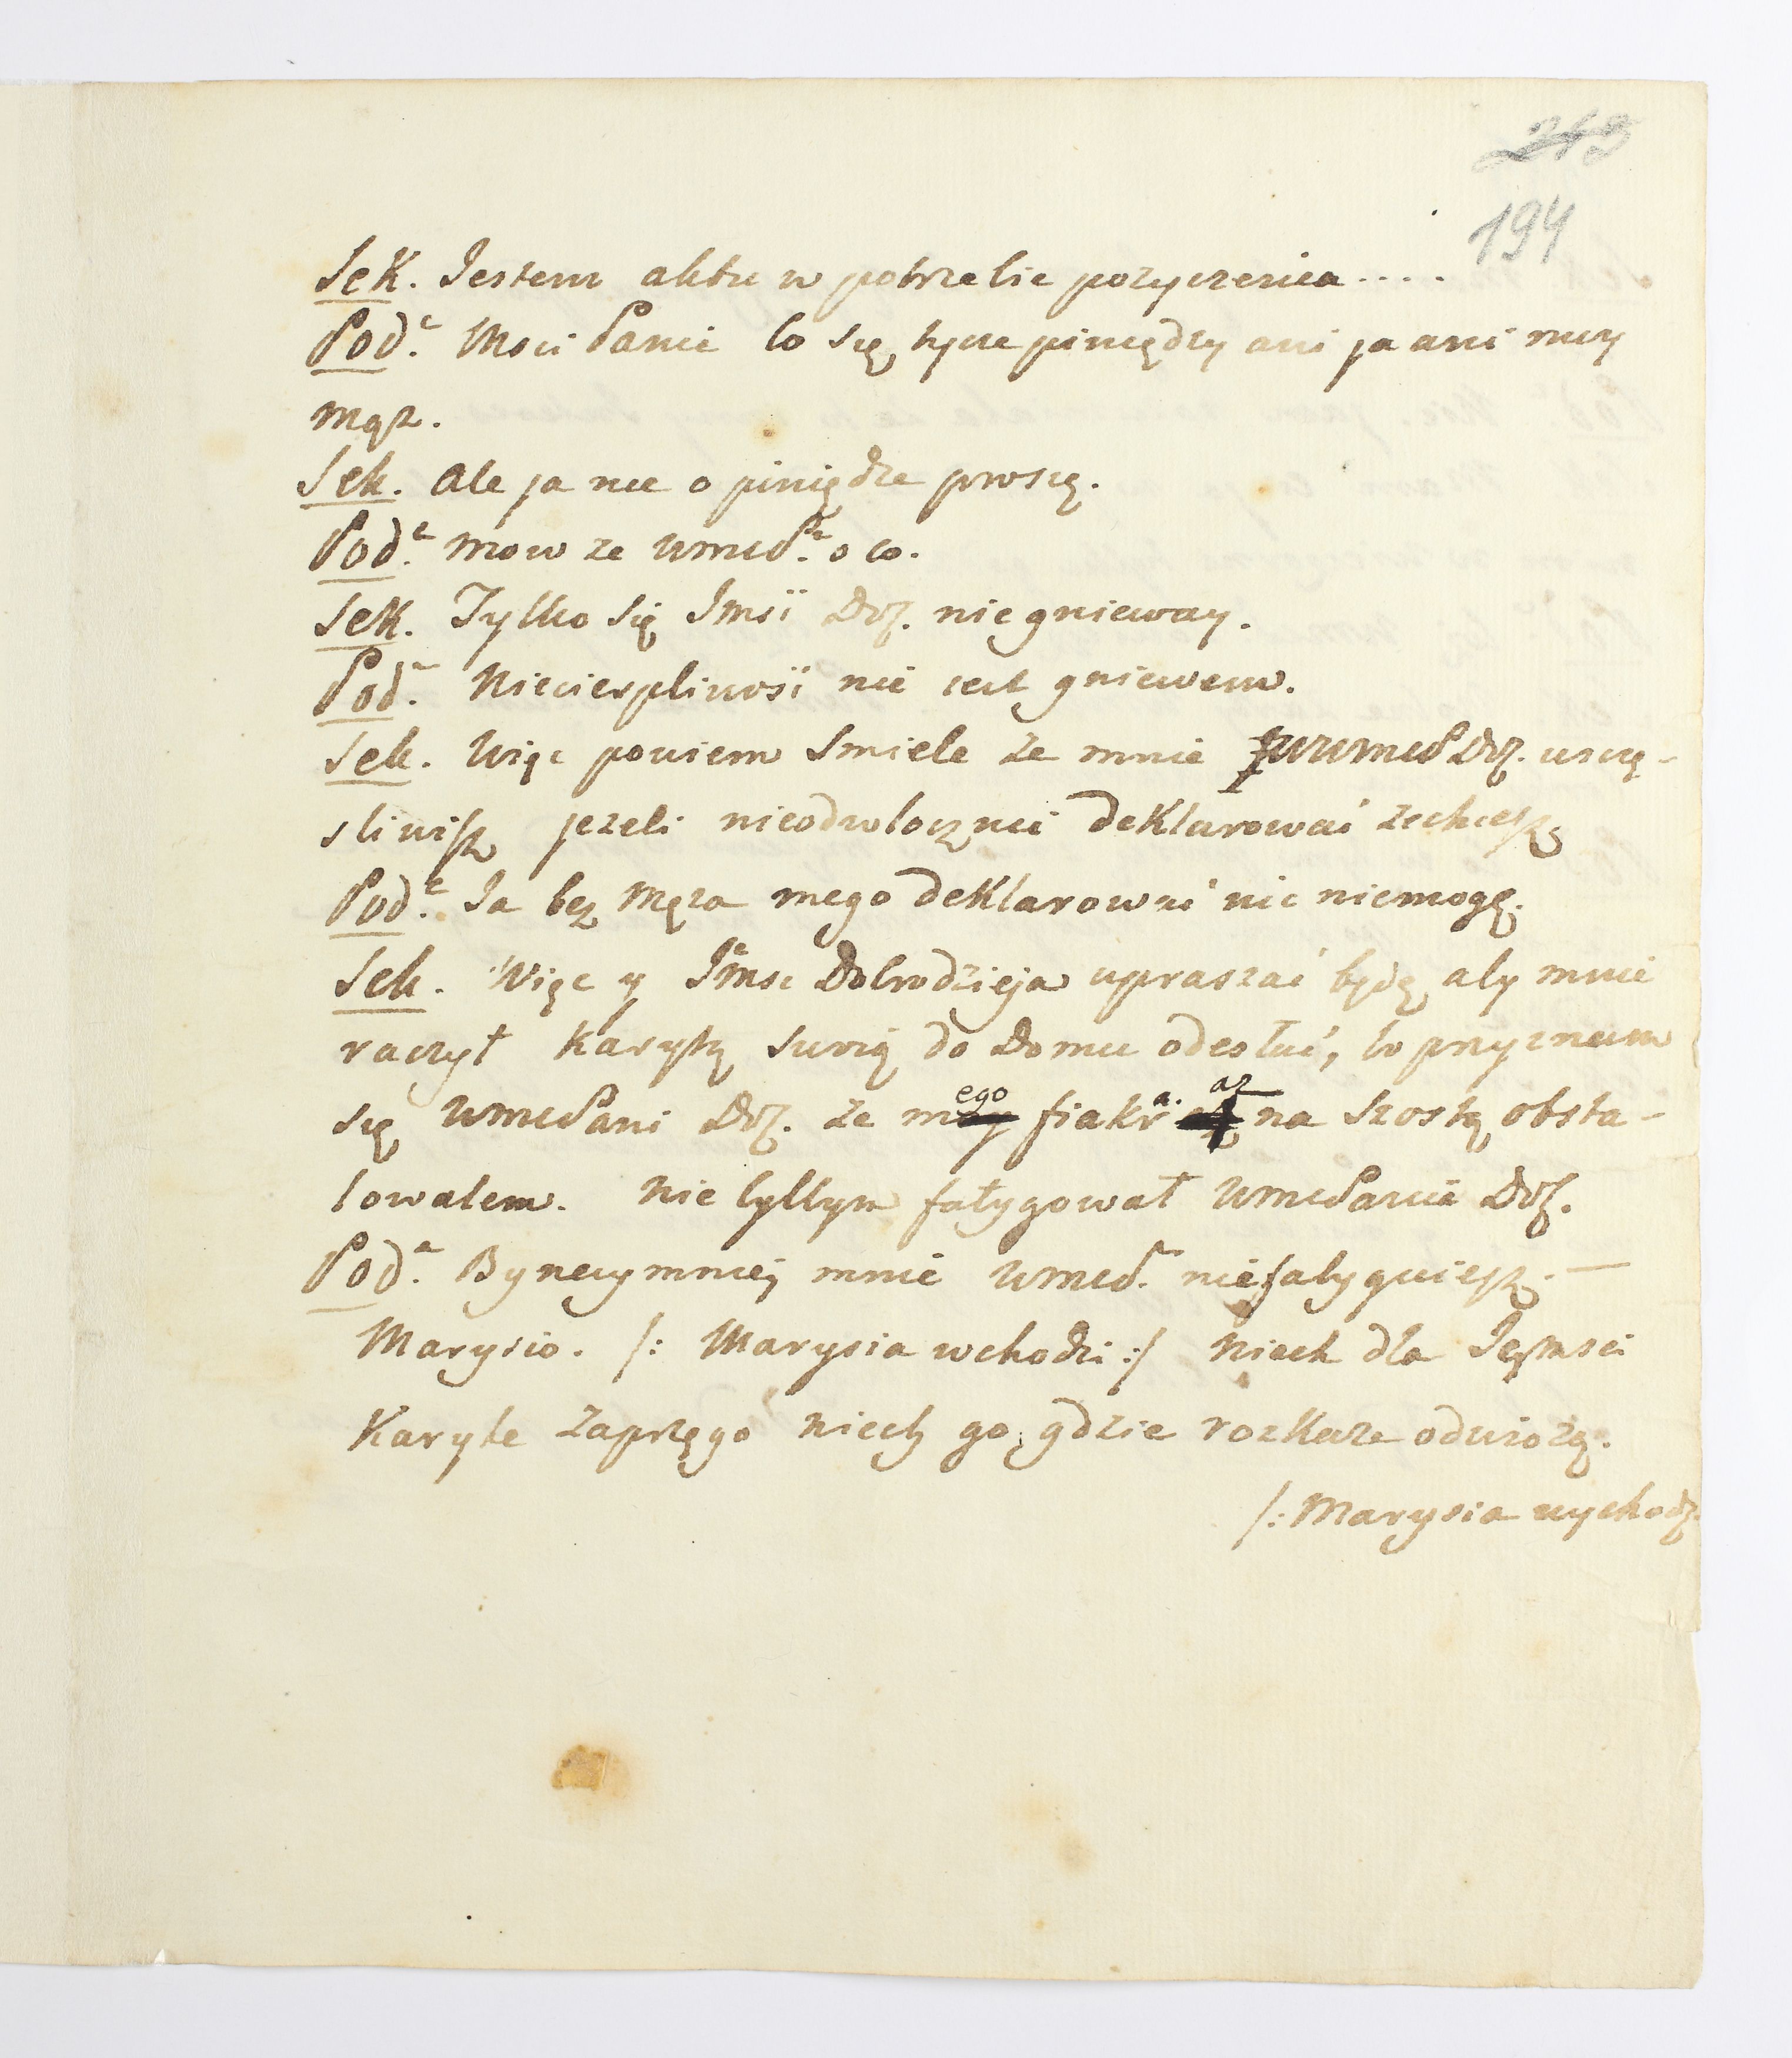 213
194
Sek. Jestem aktu w potrzebie pozyczenia....
Pod.ᵃ Mości Panie co się tycze piniędzy ani ja ani moy
mąz.
Sek. Ale ja nie o piniądze proszę.
Pod.ᵃ mow ze WmcP.ⁿ o co.
Sek. Tylko się Imsci Dzꝫ. nie gnieway.
Pod.ᵃ Niecierpliwość nie iest gniewem.
Sek. Więc powiem smiele ze mnie WWmcP Dꝫ. uszczę-
sliwisz jezeli nieodwłocznie deklarować zechcesz
Pod.ᵃ Ja bez męza mego deklarować nic niemogę.
Sek. Więc y Jmsc Dobrodzieja upraszać będę aby mnie
raczył karytą swoią do Domu odesłać, bo przyznam
się WmcPani Dꝫ. ze mego fiakra az na szostą obsta-
lowałem. nie byłbym fatygował WmcPanie Dꝫ.
Pod.ᵃ Bynaymniey mnie WmcP. nie fatyguiesz. —
Marysio. /: Marysia wchodzi :/ niech dla Jegmsci
Karyte zaprzęgo niech go gdzie rozkaze odwiozą.
/: Marysia wychodz.